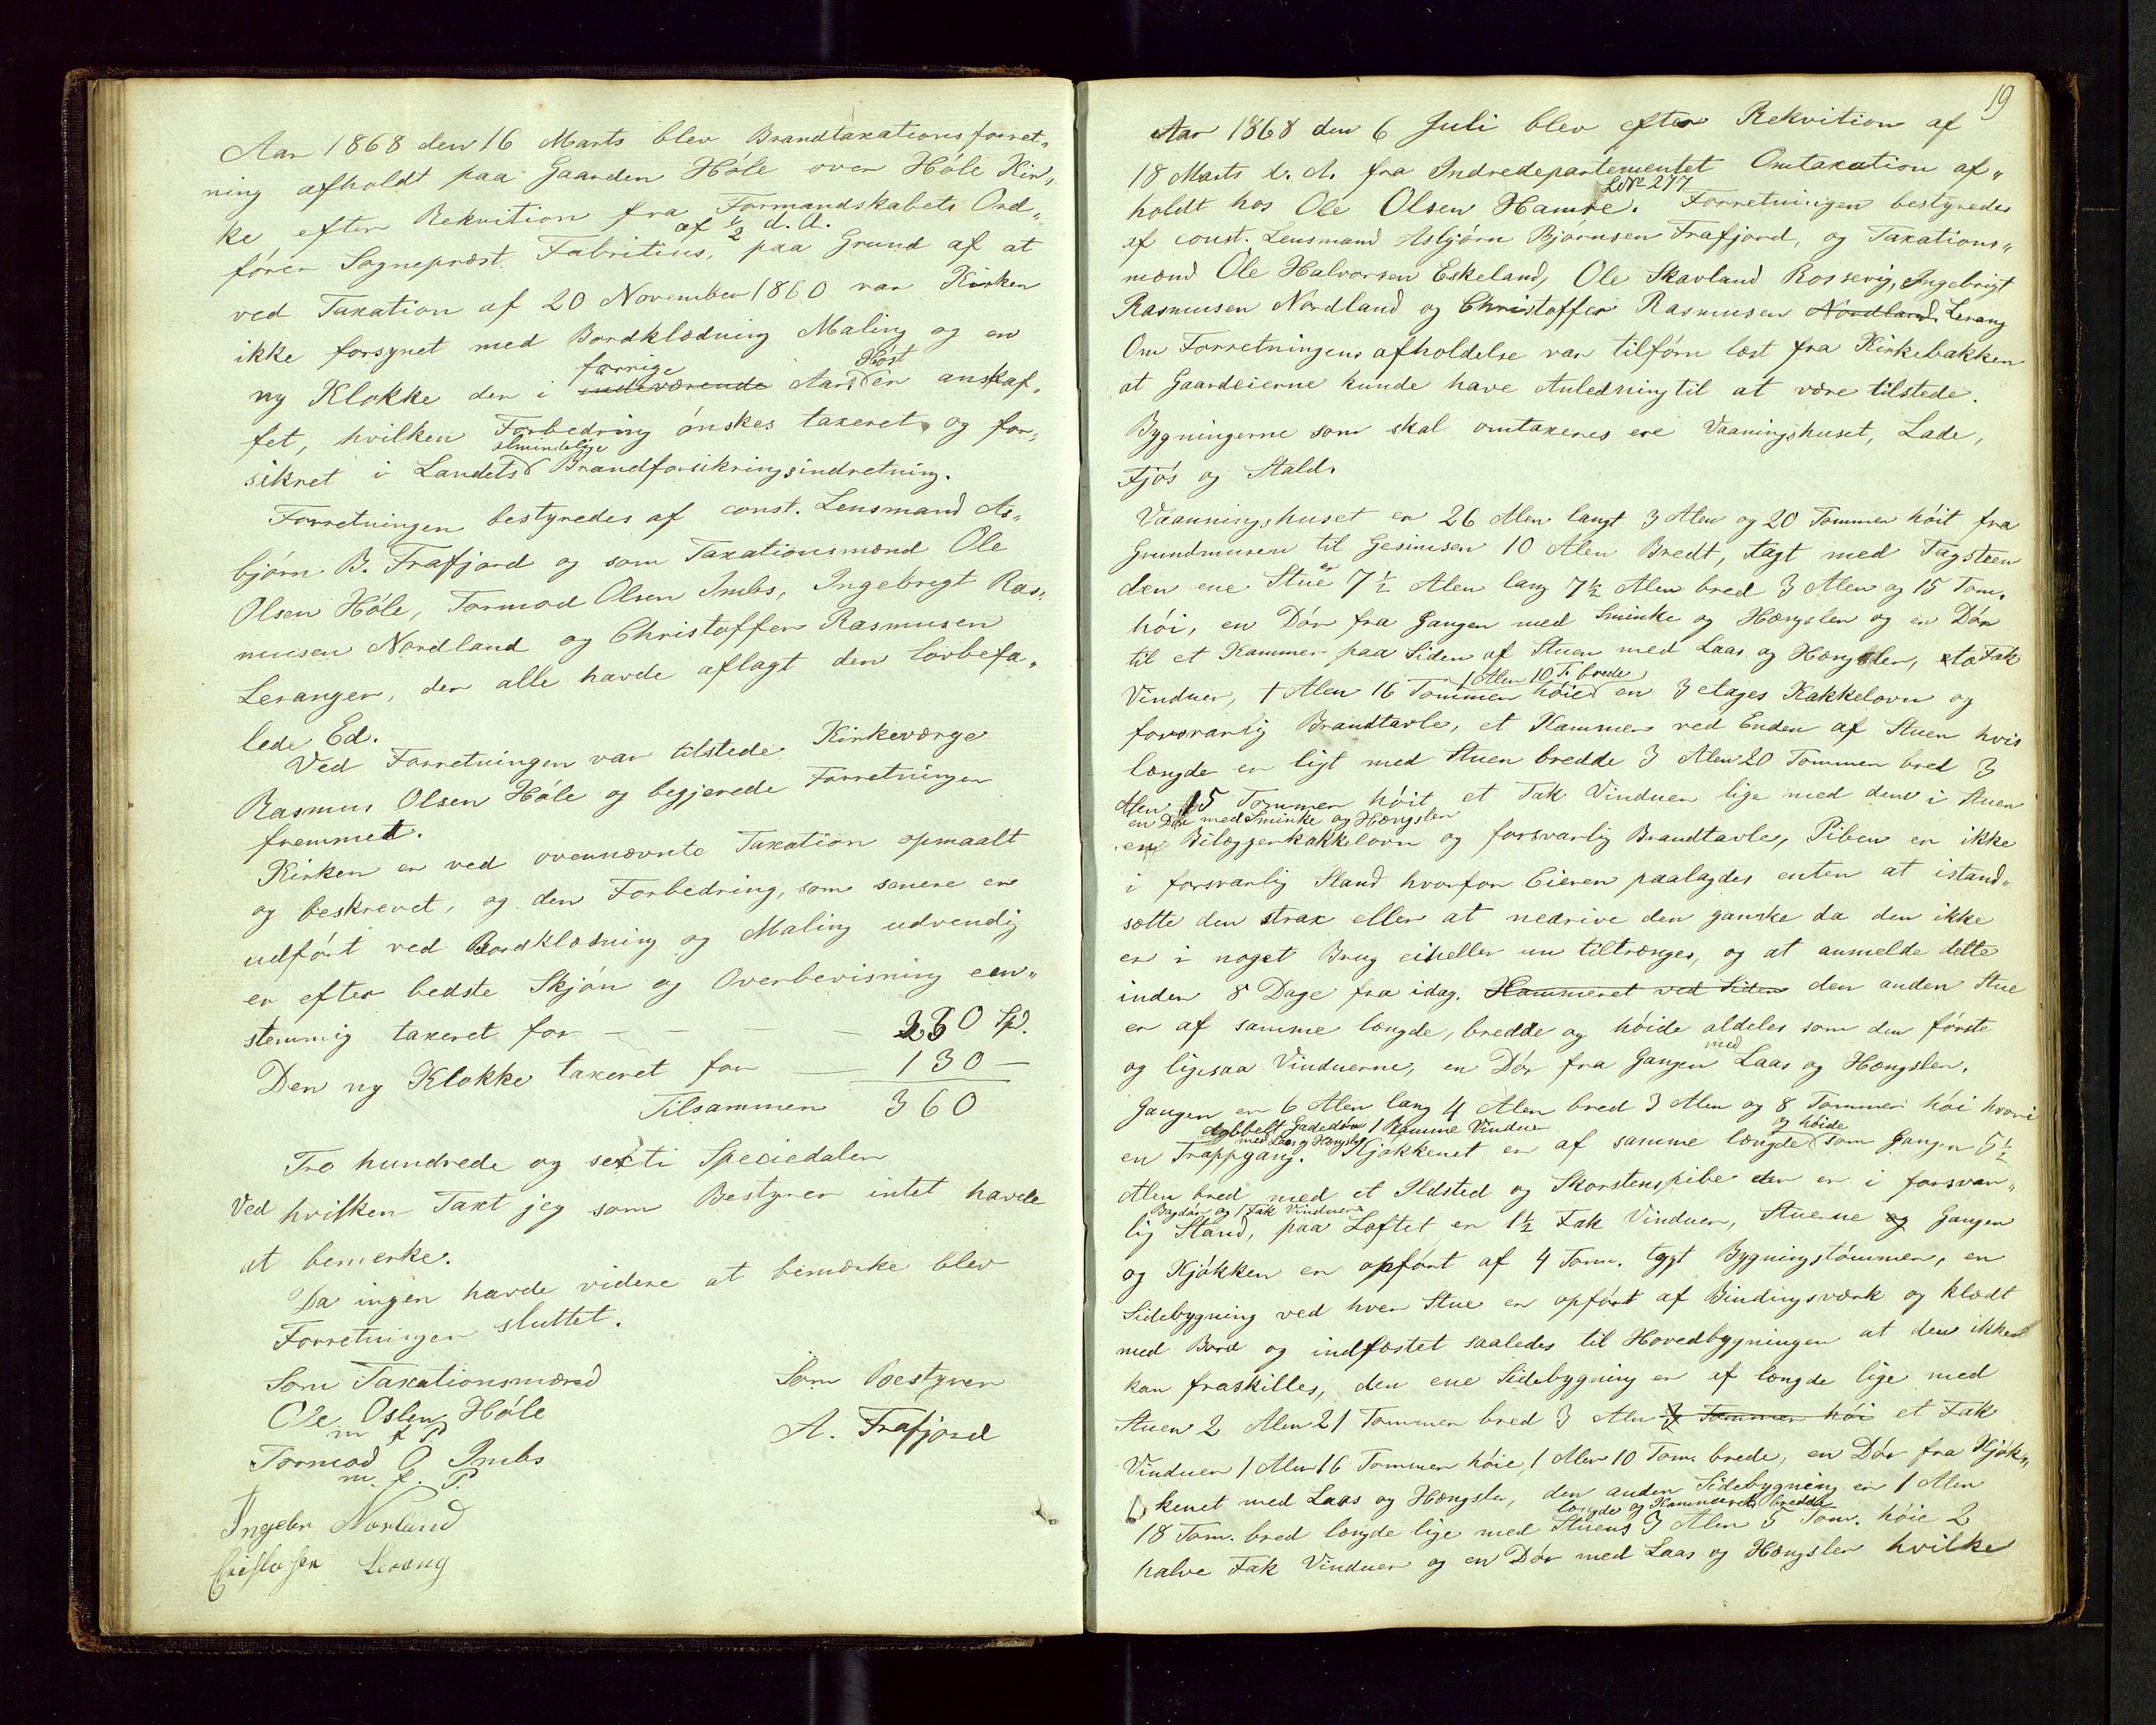 Aar 1868 den 16 Marts blev Brandtaxationsforret„
ning afholdt paa Gaarden Höle over Höle Kir„
ke efter Rekvition fra Formandskabets Ord„
af ½ d. A.
förer Sogneprest Fabritius, paa Grund af at
ved Taxation af 20 November 1860 var Kirken
ikke forsynet med Bordklædning Maling og en
forrige Höst
ny Klokke der i indeværende Aar er anskaf„
fet, hvilken Forbedring önskes taxeret og for„
almindelige
sikret i Landets Brandforsikringsindretning.
Forretningen bestyredes af const. Lensmand As„
bjørn B. Frafjord og som Taxationsmænd Ole
Olsen Höle, Tormod Olsen Imbs, Ingebregt Ras„
musen Nordland og Christoffer Rasmusen
Leranger, der alle havde aflagt den lovbefa„
lede Ed.
Ved Forretningen var tilstede Kirkeværge
Rasmus Olsen Höle og begjerede Forretningen
fremmet.
Kirken er ved ovennævnte Taxation opmaalt
og beskrevet, og den Forbedring, som senere er
udfört ved Bordklædning og Maling udvendig
er efter bedste Skjön og Overbevisning een„
stemmig taxeret for — — — 230 Spd.
Den ny Klokke taxeret for — 130 —
Tilsammen 360
Tre hundrede og sexti Speciedaler
Ved hvilken Taxt jeg som Bestyrer intet havde
at bemerke.
Da ingen havde videre at bemærke blev
Forretningen sluttet.
Som Taxationsmænd Som Bestyrer
Ole Oslen Höle
m f P. A. Frafjord
Tormod O Imbs
m. f. P.
Ingebr Norland
Leraang
19
Aar 1868 den 6 Juli blev efter Rekvition af
18 Marts d. A. fra Indredepartementet Omtaxation af„
LNº 277
holdt hos Ole Olsen Hamre. Forretningen bestyredes
af const. Lensmand Asbjörn Bjørnsen Frafjord, og Taxations„
mænd Ole Halvorsen Eskeland, Ole Skavland Rossevig, Ingebrigt
Rasmusen Nordland og Christoffer Rasmusen Nordland Lerang
Om Forretningens afholdelse var tilförn læst fra Kirkebakken
at Gaardeierne kunde have Anledning til at være tilstede.
Bygningerne som skal omtaxeres ere Vaaningshuset, Lade,
Fjös og Stald.
Vaanningshuset er 26 Alen langt 3 Alen og 20 Tommer höit fra
Grundmuren til Gesimsen 10 Alen Bredt, tagt med Tagsteen
er
den ene Stue 7½ Alen lang 7½ Alen bred 3 Alen og 15 Tom.
höi, en Dör fra Gangen med Sminke og Hængsler og en Dör
til et Kammer paa Siden af Stuen med Laas og Hængsler, to Fak
1 Alen 10 T. brede
Vinduer, 1 Alen 16 Tommer höie en 3 etages Kakkelovn og
forsvarlig Brandtavle, et Kammer ved Enden af Stuen hvis
længde er ligt med Stuen bredde 3 Alen 20 Tommer bred 3
Alen 15 Tommer höit et Fak Vinduer lige med dem i Stuen
en Dör med Sminke og Hængsler
en Bilæggerkakkelovn og forsvarlig Brandtavle, Piben er ikke
i forsvarlig Stand hvorfor Eieren paalagdes enten at istand„
sætte den strax eller at nedrive den ganske da den ikke
er i noget Brug eiheller nu tiltrænges, og at anmelde dette
inden 8 Dage fra idag. Kammeret ved Siden den anden Stue
er af samme længde, bredde og höide aldeles som den förste
med
og ligesaa Vinduerne, en Dör fra Gangen Laas og Hængsler.
Gangen er 6 Alen lang 4 Alen bred 3 Alen og 8 Tommer höi hvori
dobbelt Gadedör 1 Ramme Vindue og höide
med Laas og Hængsler
en Trappgang. Kjökkenet er af samme længde som Gangen 5½
Alen bred med et Ildsted og Skorstenspibe der er i forsvar„
Bagdör og 1 Fak Vinduer
lig Stand, paa Loftet er 1½ Fak Vinduer, Stuerne og Gangen
og Kjökken er opfört af 4 Tom. tygt Bygningstömmer, en
Sidebygning ved hver Stue er opfört af Bindingsværk og klædt
med Bord og indfæstet saaledes til Hovedbygningen at den ikke
kan fraskilles, den ene Sidebygning er af længde lige med
Stuen 2 Alen 21 Tommer bred 3 Alen 3 Tommer höi et Fak
Vinduer 1 Alen 16 Tommer höie, 1 Alen 10 Tom brede, en Dör fra Kjök„
kenet med Laas og Hængsler, den anden Sidebygning er 1 Alen
længde og Kammerets bredde
18 Tom. bred længde lige med Stuens 3 Alen 5 Tom. höie 2
halve Fak Vinduer og en Dör med Laas og Hængsler hvilke